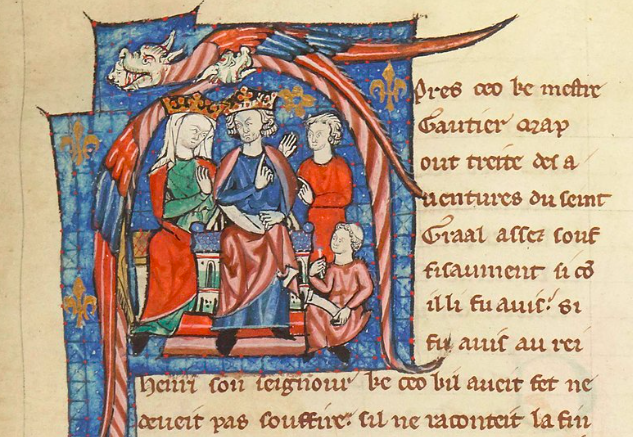 Apres ceo ke mestre
Gautier map
out treite des a
uentures du seint
Graal assez souf
fisaument si cō
il li fu auis: si
fu auis au rei
henri son seignour ke ceo kil aueit fet ne
deueit pas souffire: sil ne raconteit la fin